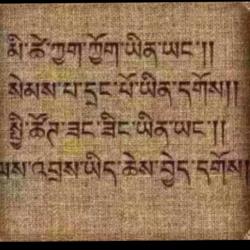 མི་ཚེ་ཀྱག་ཀྱོག་ཡིན་ཡང་།།
སེམས་པ་དྲང་པོ་ཡིན་དགོས།།
སྤྱི་ཚོཊ་ཟང་ཟིང་ཡིན་ཡང་།།
ལས་འབྲས་ཡིད་ཆེས་བྱེད་དགོས།